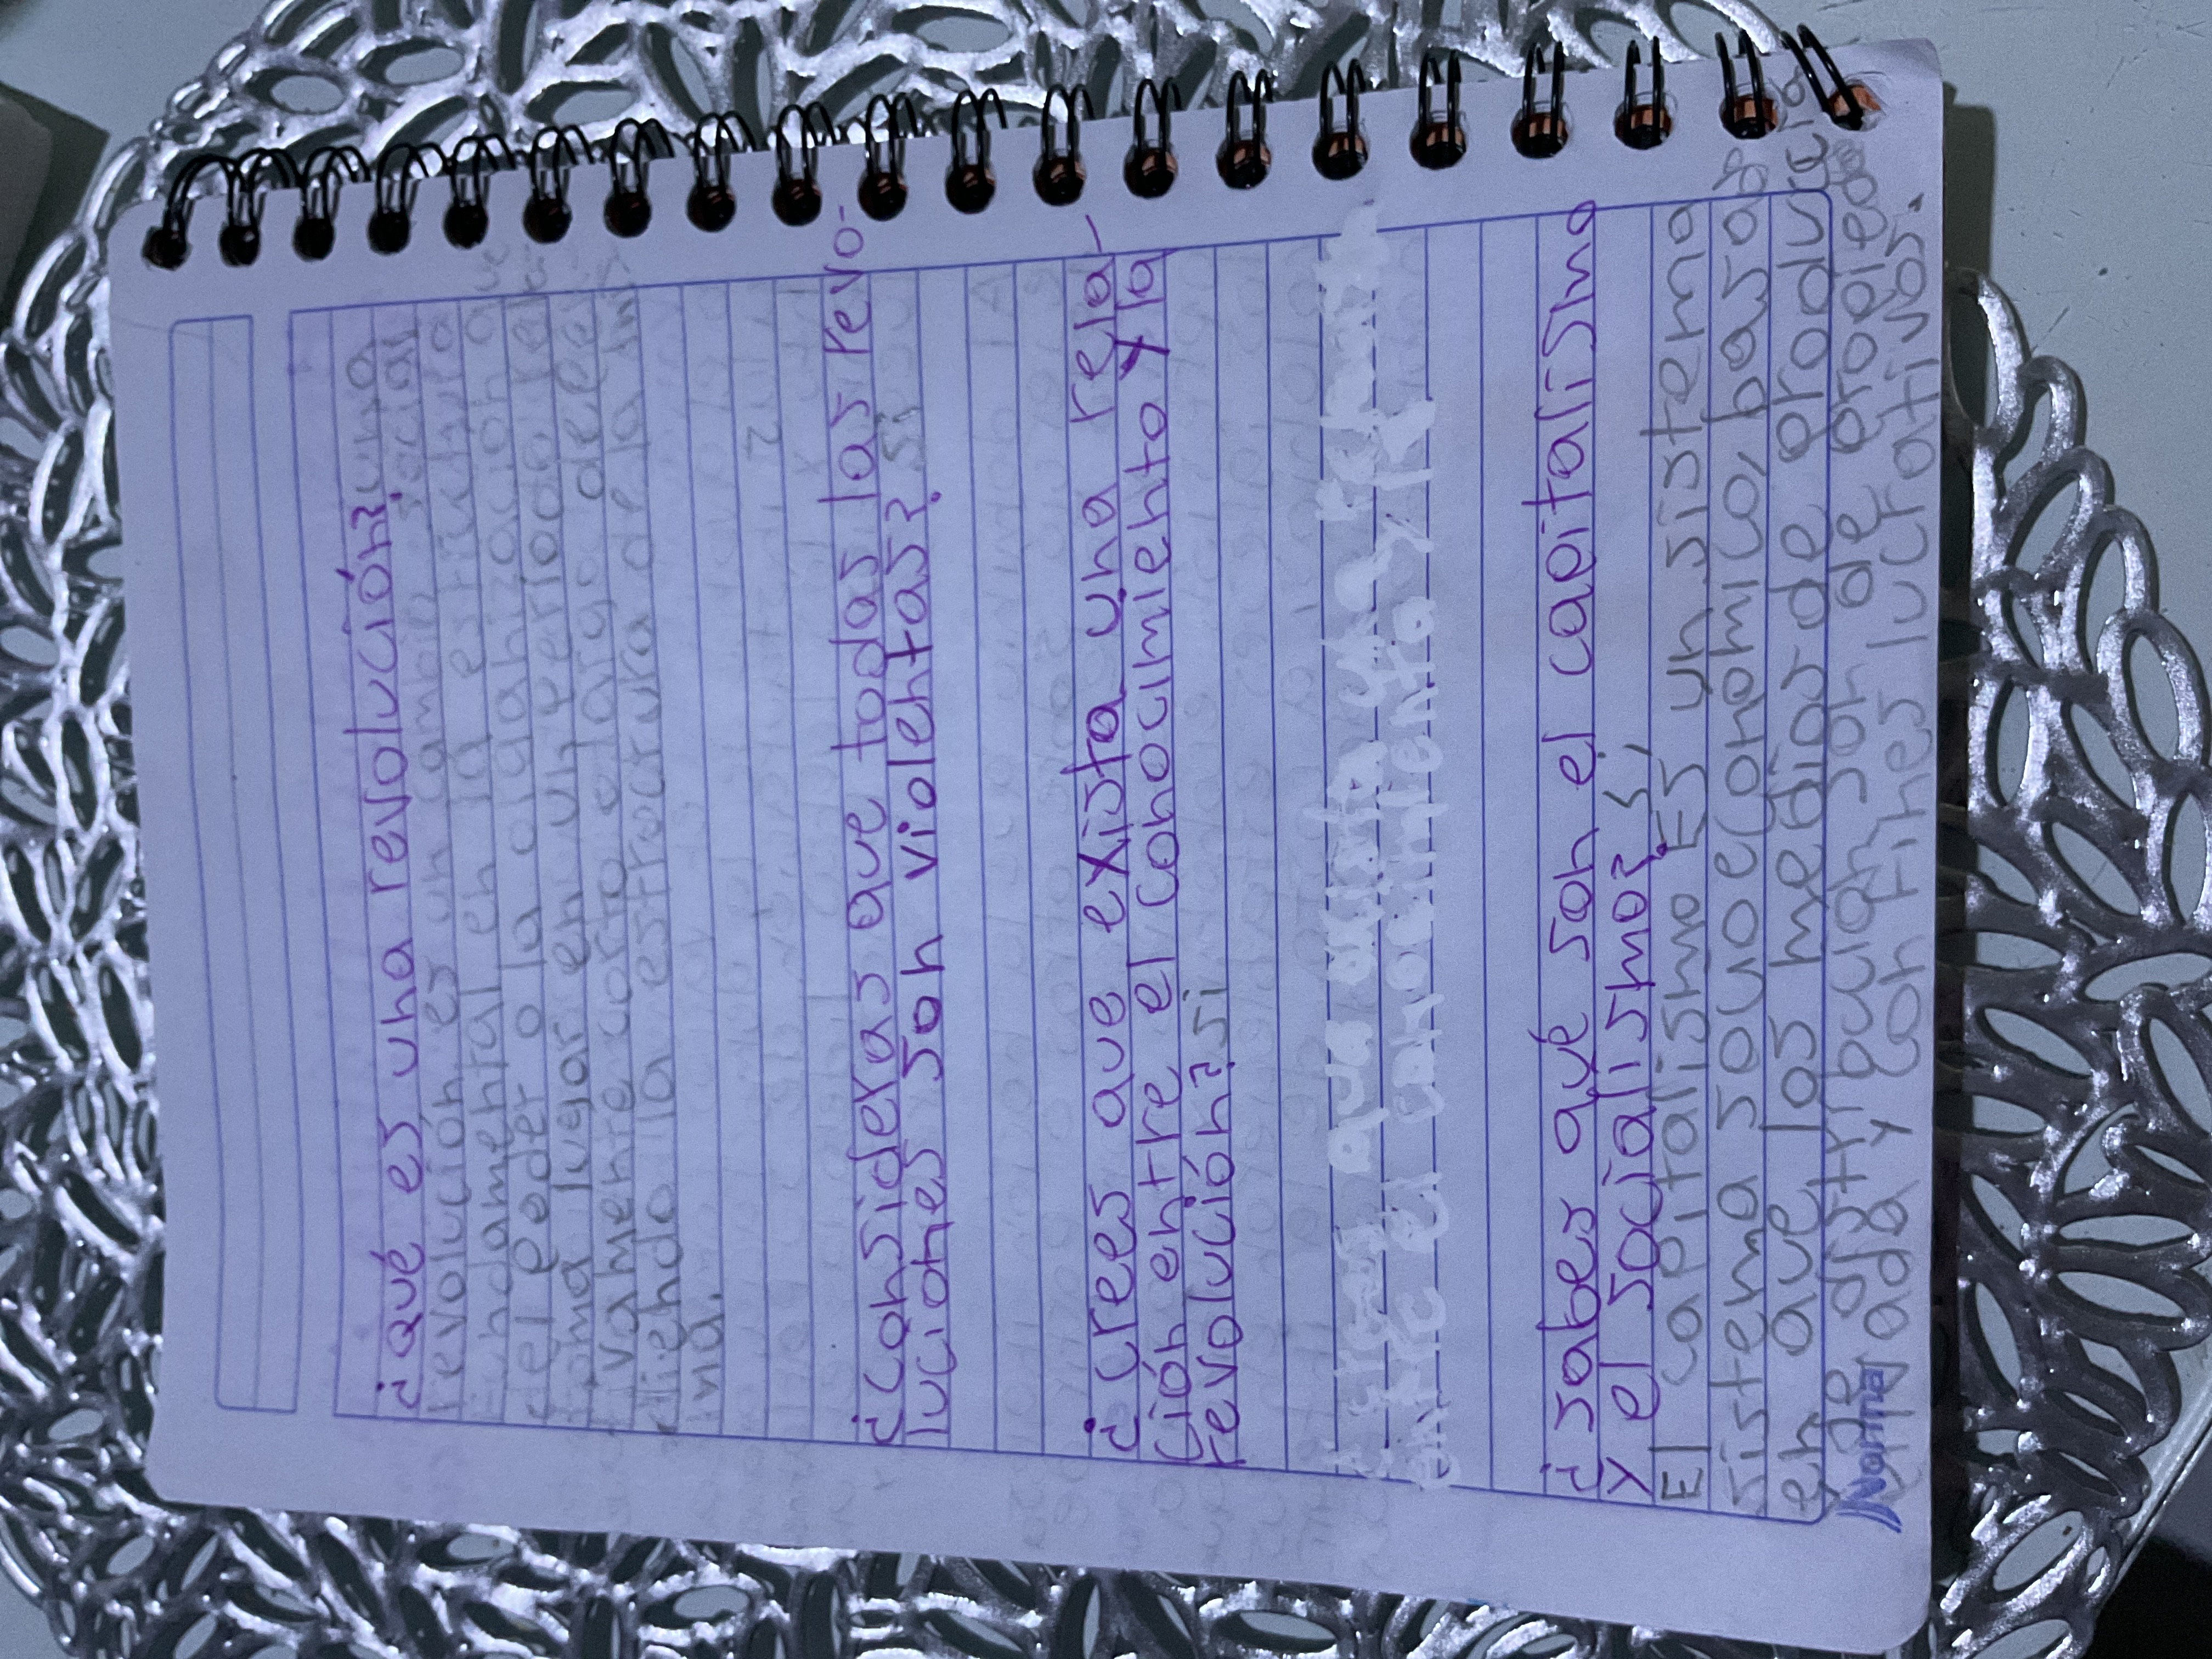 ¿qué es una revolución? una
revolución es un cambio social
fundamental en la estructura
del poder o la organización que
toma lugar en un periodo rela-
tivamente corto o largo dee
diendo la estructura de la mis
ma.
¿consideras que todas las revo-
luciones son violentas? si
¿crees que exista una rela-
ción entre el conocimiento y la
revolución? si
¿sabes qué son el capitalismo
y el socialismo? si,
El capitalismo Es un sistema
sistema socuoeconomico, basa
en que los medios de producció
y de distribucion son de propieda
ada y con fines lucrativos.
Norma